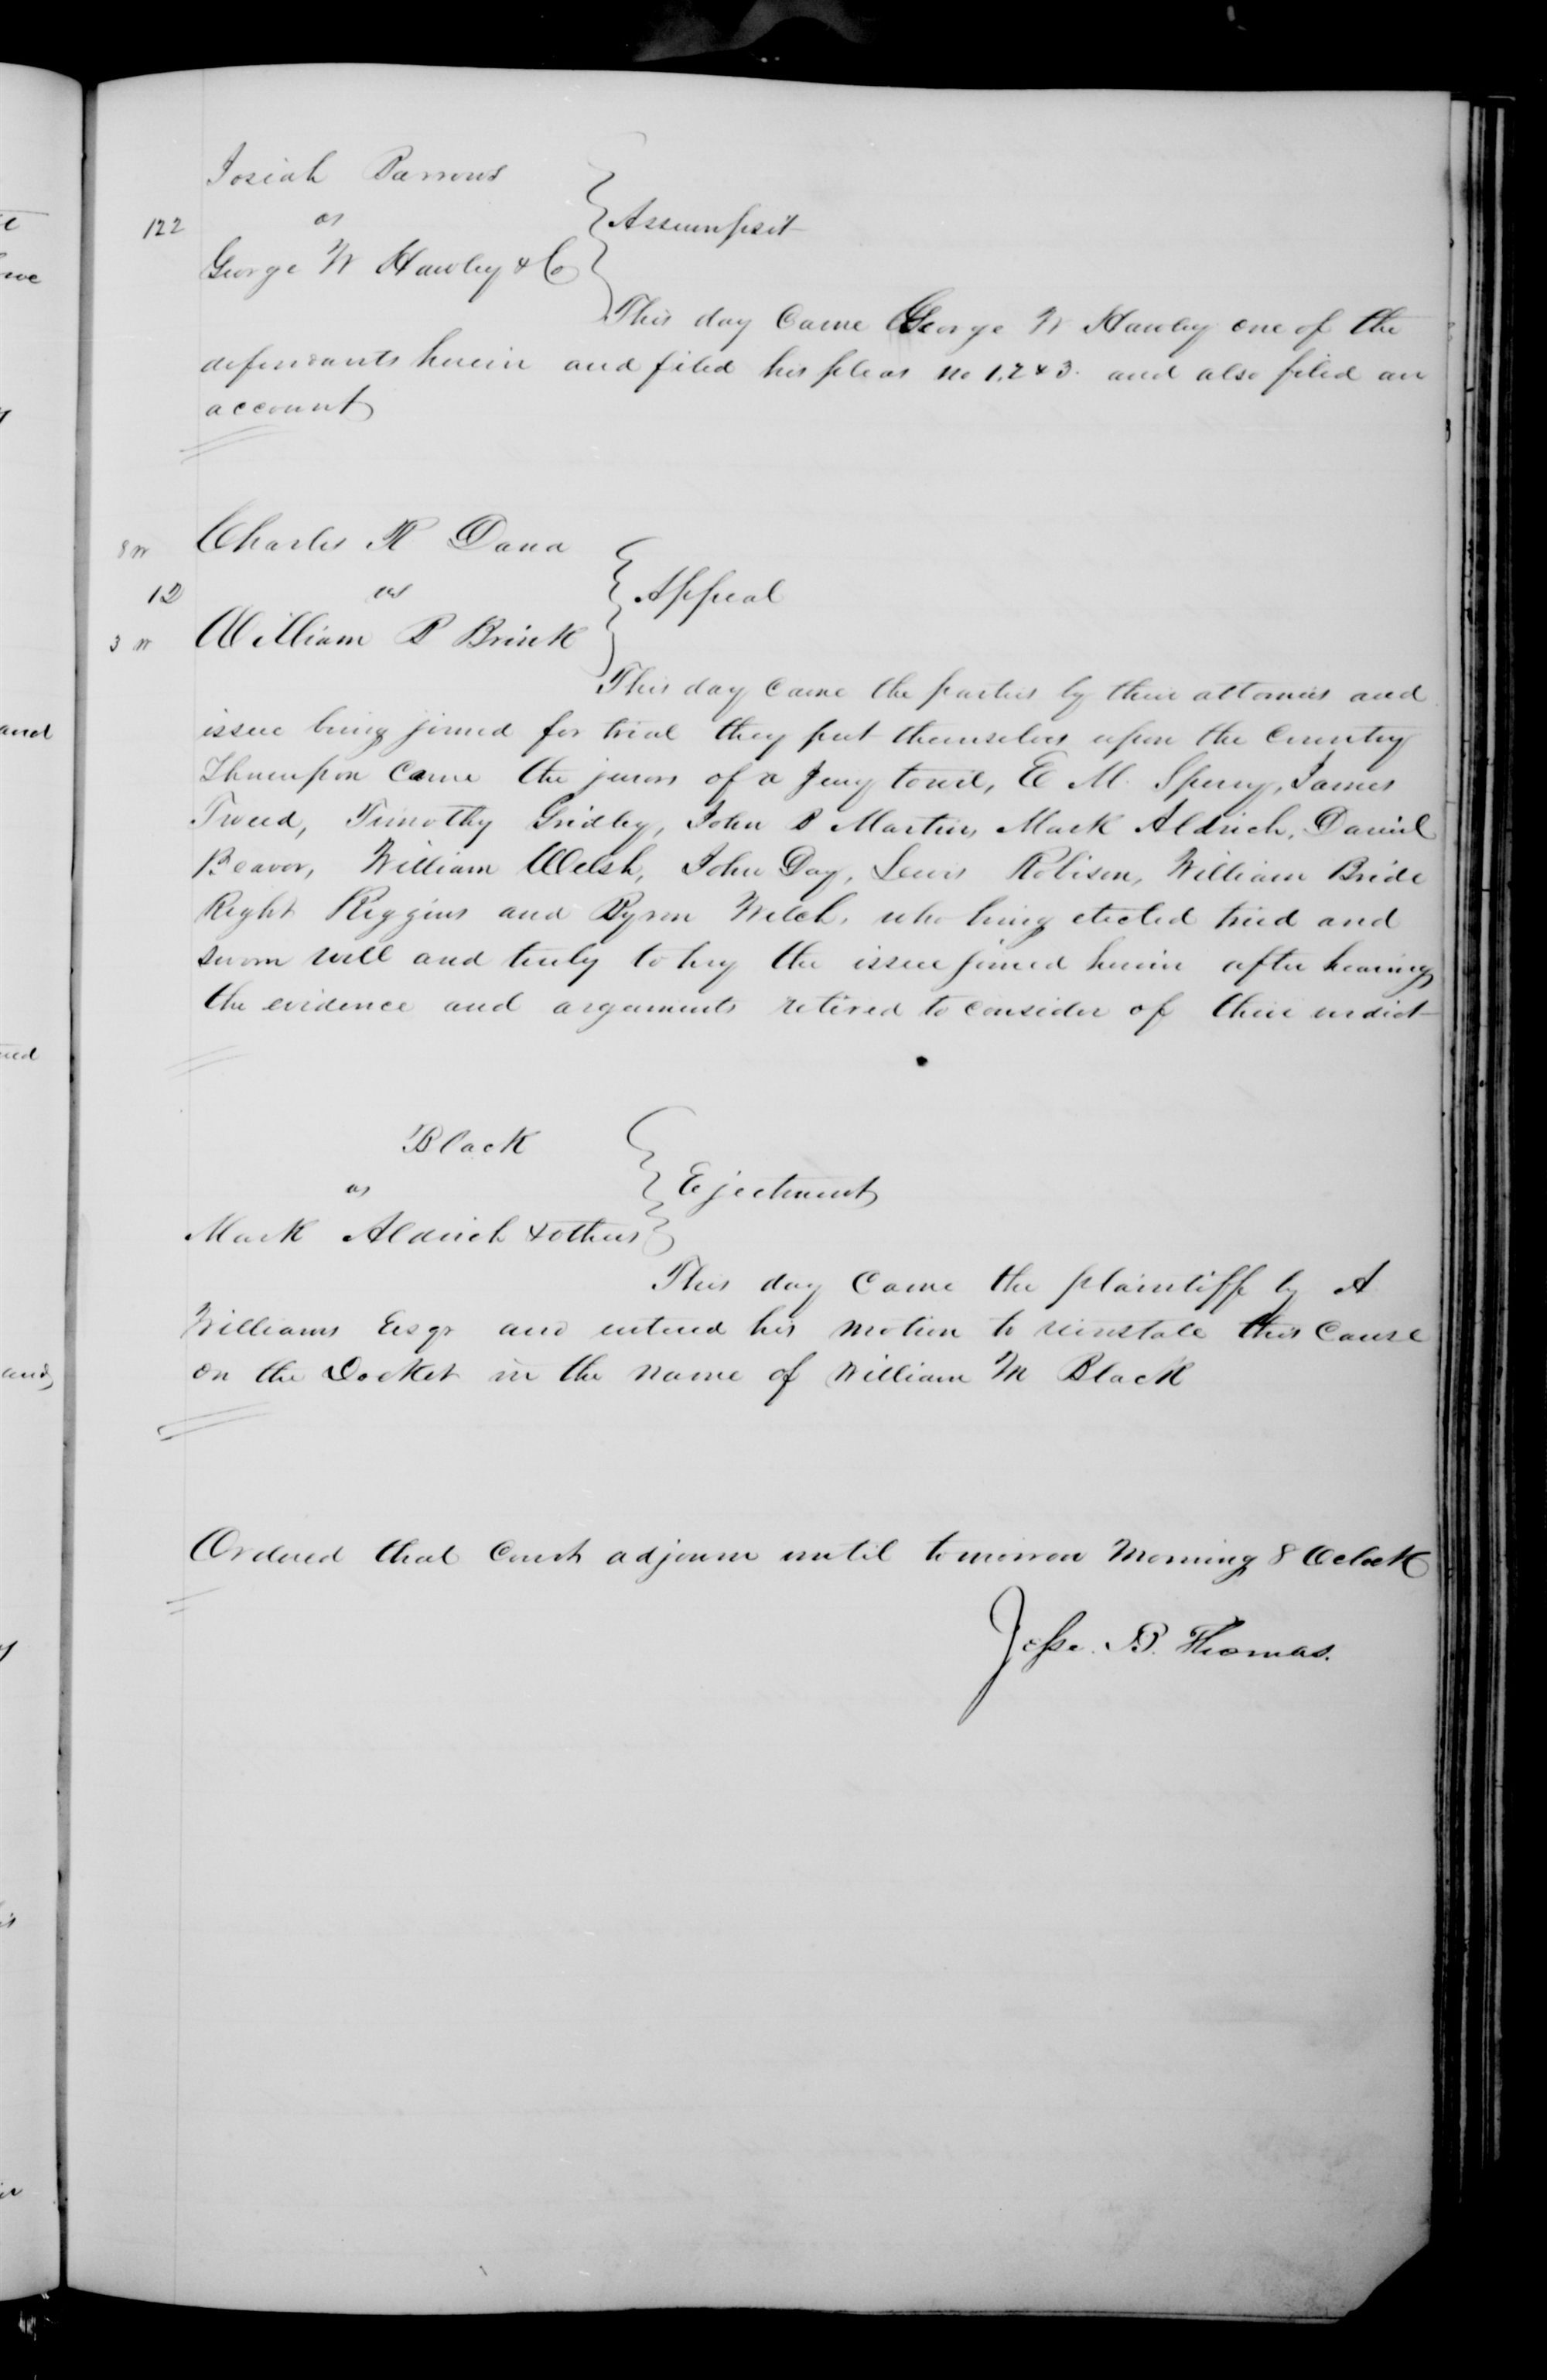 Josiah Parsons
122 vs } Assumpsit
George W Hawley & Co
This day Came George W Hawley one of the
defendants herein and filed his pleas no 1, 2 & 3. and also filed an
account
8 w Charles R Dana
12 vs } Appeal
3 w William P Brink
This day Came the parties by their attornies and
issue being joined for trial they put themselves upon the Country
Thereupon Came the jurors of a Jury towit, E M. Sperry, James
Tweed, Timothy Gridley, John P Martin, Mark Aldrich, Daniel
Beaver, William Welsh, John Day, Lewis Robison, William Bride
Right Riggins and Byron Welch, who being elected tried and
sworn well and truly to try the issue joined herein after hearing
the evidence and arguments retired to consider of their verdict
Black
vs } Ejectment
Mark Aldrich & others
This day Came the plaintiff by A
Williams Esqr and entered his motion to reinstate this Cause
on the Docket in the name of William M Black
Ordered that Court adjourn until tomorrow Morning 8 Oclock
Jesse. B. Thomas.
and
and